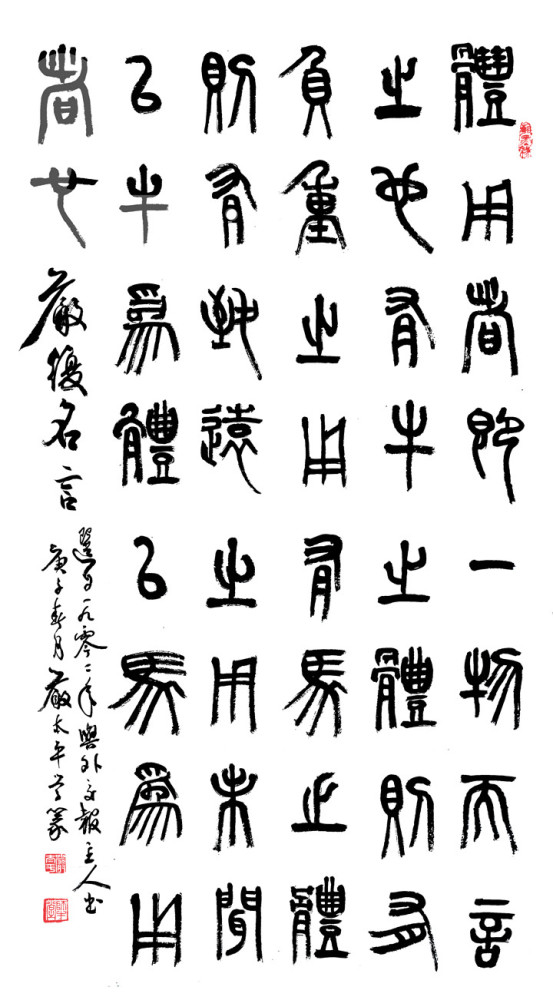 體用者即一物而言
之也有牛之體則有
負重之用有馬之體
則有致遠之用未聞
以牛為體以馬為用
者也
嚴復名言
選自一九零二年與外交報主人書
庚子春月嚴太平篆